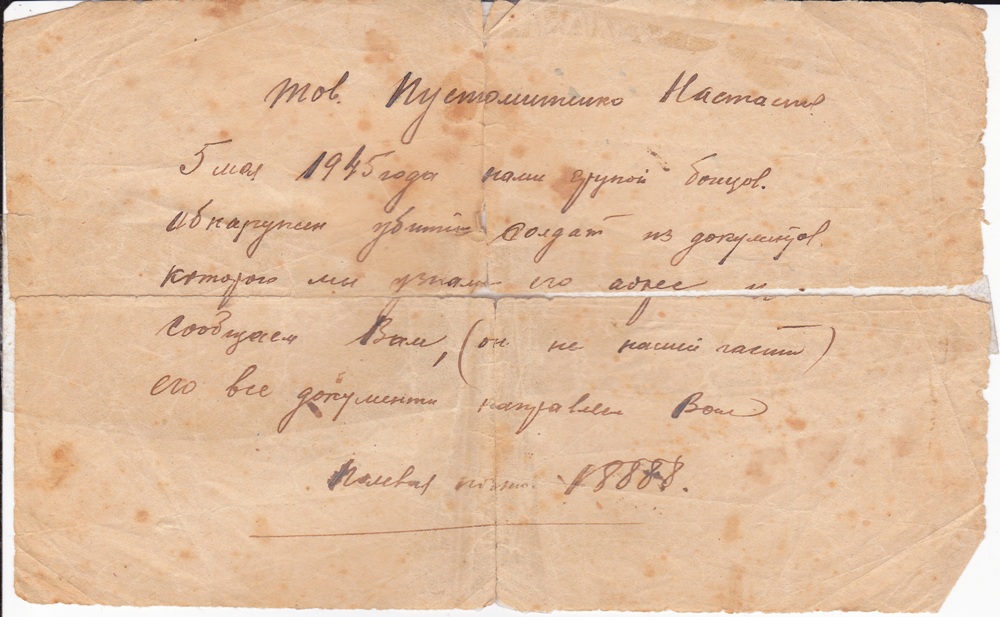 Тов. Пустомитенко Настасия
5 мая 1945 года нами групой бойцов.
обнаружен убитий солдат из документов.
которого мы узнали его адрес и
сообщаем Вам, (он не нашей части)
его все документи направлен Вам
Полевая почта N8888.